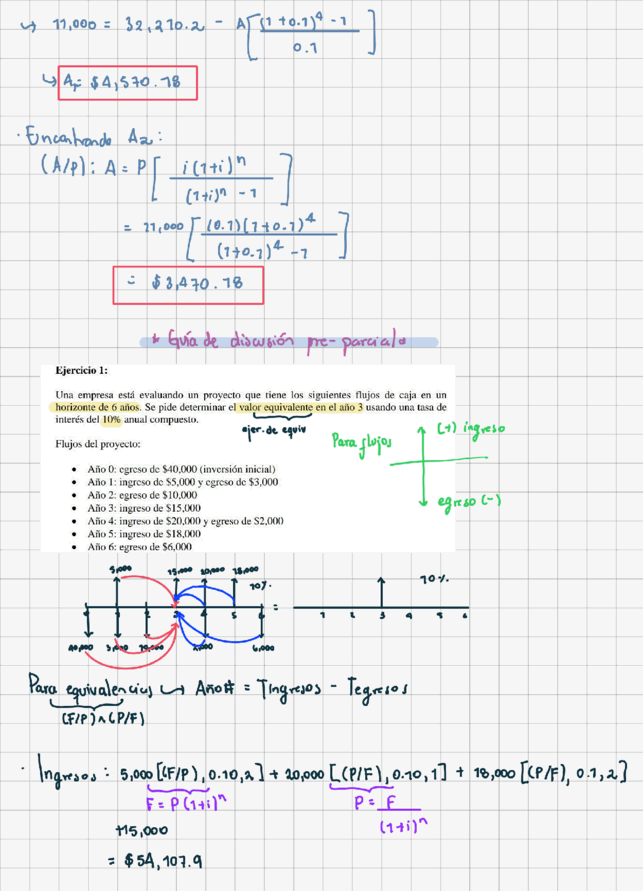 ↳ 11,000 = 32,210.2 - A[(1+0.1)^4 - 1 / 0.1]
↳ A₁ = $4,570.18
· Encontrando A₂:
(A/P): A = P [ i(1+i)^n / (1+i)^n - 1 ]
= 11,000 [ (0.1)(1+0.1)^4 / (1+0.1)^4 - 1 ]
= $3,470.18
* Guía de discusión pre-parcial *
Ejercicio 1:
Una empresa está evaluando un proyecto que tiene los siguientes flujos de caja en un
horizonte de 6 años. Se pide determinar el valor equivalente en el año 3 usando una tasa de
interés del 10% anual compuesto.
ejer. de equiv
Flujos del proyecto:
Para flujos
(+) ingreso
egreso (-)
• Año 0: egreso de $40,000 (inversión inicial)
• Año 1: ingreso de $5,000 y egreso de $3,000
• Año 2: egreso de $10,000
• Año 3: ingreso de $15,000
• Año 4: ingreso de $20,000 y egreso de $2,000
• Año 5: ingreso de $18,000
• Año 6: egreso de $6,000
5,000 15,000 20,000 18,000
10% 10%
1 2 3 4 5 6 = 1 2 3 4 5 6
40,000 3,000 10,000 2,000 6,000
Para equivalencias ↳ Año# = Tingresos - Tegresos
(F/P) ∧ (P/F)
· Ingresos: 5,000 [(F/P), 0.10, 2] + 20,000 [(P/F), 0.10, 1] + 18,000 [(P/F), 0.1, 2]
F = P(1+i)^n P = F / (1+i)^n
+15,000
= $54,107.9